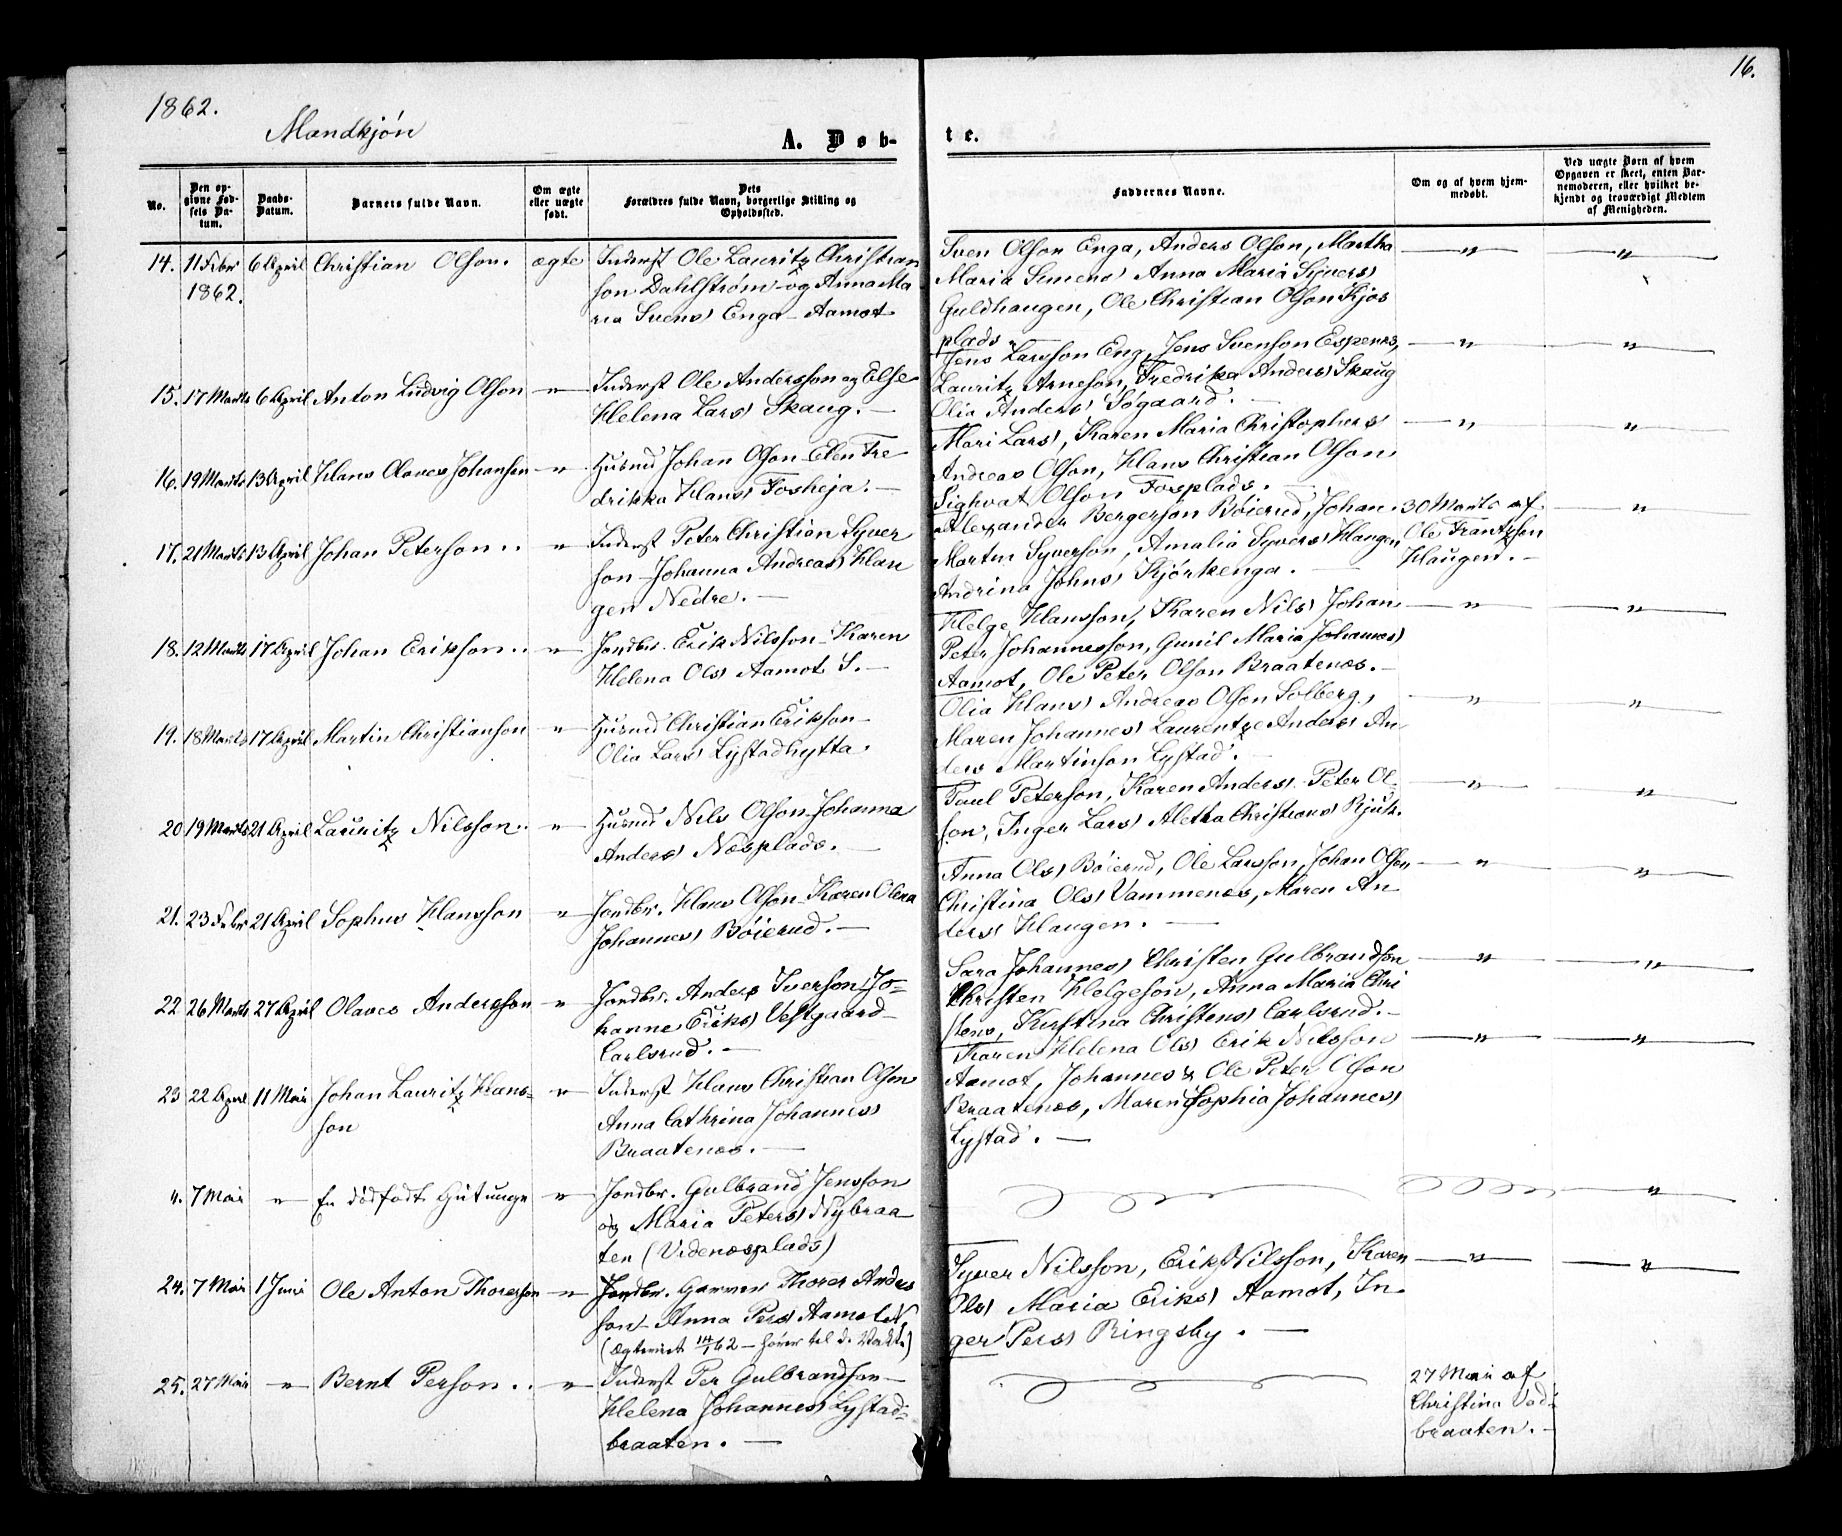 1862.
16.
Mandkjön
A. Døb-
te.
No.
Den opgivne Fødsels Datum.
Daabs-Datum.
Barnets fulde Navn.
Om ægte eller uægte født.
Dets Forældres fulde Navn, borgerlige Stilling og Opholdssted.
Faddernes Navne.
Om og af hvem hjemmedøbt.
Ved uægte Børn af hvem Opgaven er skeet, enten Barnemoderen, eller hvilket bekjendt og troværdigt Medlem af Menigheden.
14. 11 Febr 6 April Christian Olson. ægte Inderst Ole Lauritz Christian
1862. son Dahlström og Anna Ma
ria Svens Enga Aamot
Sven Olson Enga, Anders Olson, Martha — " — — " —
Maria Simens Anna Maria Syvers
Guldhaugen, Ole Christian Olson Kjos
plads. —
15. 17 Marts 6 April Anton Ludvig Olson — " — Inderst Ole Andersson og Else
Helena Lars Skaug. —
Jens Larsson Eng, Jens Svenson Espenes, — " — — " —
Lauritz Arneson, Fredrika Anders Skaug
Olia Anders Søgaard. —
16. 19 Marts 13 April Hans Olaves Johanson — " — Husmd Johan Olson Elen Fre
drikka Hans Fosheja. —
Mari Lars, Karen Maria Christophers — " — — " —
Andreas Olson, Hans Christian Olson
Sighvat Olson Fosplads. —
17. 21 Marts 13 April Johan Peterson.. " Inderst Peter Christian Syver
son — Johanna Andreas Hau
gen Nedre. —
Alexander Bergerson Böierud, Johan 30 Marts af — " —
Martin Syverson, Amalia Syvers Haugen, Ole Frantzson
Andrina Johns Kjörkenga. — Haugen. —
18. 12 Marts 17 April Johan Erikson.. — " — Jordbr. Erik Nilsson — Karen
Helena Ols Aamot S. —
Helge Hansson, Karen Nils Johan — " — — " —
Peter Johannesson, Gunil Maria Johannes
Aamot, Ole Peter Olson Braatenes. —
19. 18 Marts 17 April Martin Christianson " Husmd Christian Erikson —
Olia Lars Lystadhytta.
Olia Hans Andreas Olson Solberg, — " — — " —
Maren Johannes Laurentze Anders An
ders Martinson Lystad. —
20 19 Marts 21 April Lauritz Nilsson.. — " — Husmd Nils Olson Johanna
Anders Nesplads. —
Paul Peterson, Karen Anders Peter Ol — " — — " —
son, Inger Lars Aletha Christians Kjus.
21. 23 Febr 21 April Sophus Hansson — " — Jordbr. Hans Olson — Karen Olena
Johannes Böierud. —
Anna Ols Böierud, Ole Larsson, Johan Olson — " — — " —
Christina Ols Vammenes, Maren An
ders Haugen. —
22 26 Marts 27 April Olaves Andersson — " — Jordbr. Anders Iverson Jo-
hanne Eriks Vestgaard —
Carlsrud. —
Sara Johannes Christen Gulbrandson — " — — " —
Christen Helgeson, Anna Maria Chri
stens, Kirstina Christens Carlsrud. —
23 22 April 11 Mai Johan Lauritz Hans- — " — Inderst Hans Christian Olson
son Anna Cathrina Johannes
Braatenes. —
Karen Helena Ols Erik Nilsson — " — — " —
Aamot, Johannes & Ole Peter Olson
Braatenes, Maren Sophia Johannes
Lystad. —
4. 7 Mai — " — En dödfödt Gutunge — " — Jordbr. Gulbrand Jensson — " —
og Maria Peters Nybraa
ten (Videnesplads)
24. 7 Mai 1 Juni Ole Anton Thorerson — " — Jordbr. Garver Thorer Anders
son — Anna Pers Aamot N.
(Ægteviet 14/1 62 — hører til d. Vakt)
Syver Nilsson, Erik Nilsson, Karen — " — — " —
Ols Maria Eriks Aamot, In
ger Pers Ringsby. —
25. 27 Mai — " — Bernt Person.. — " — Inderst Per Gulbrandson —
Helena Johannes Lystad-
braaten. —
27 Mai af
Christina Ved-
braaten. —